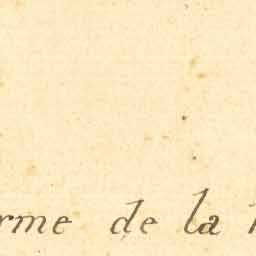 rme de la